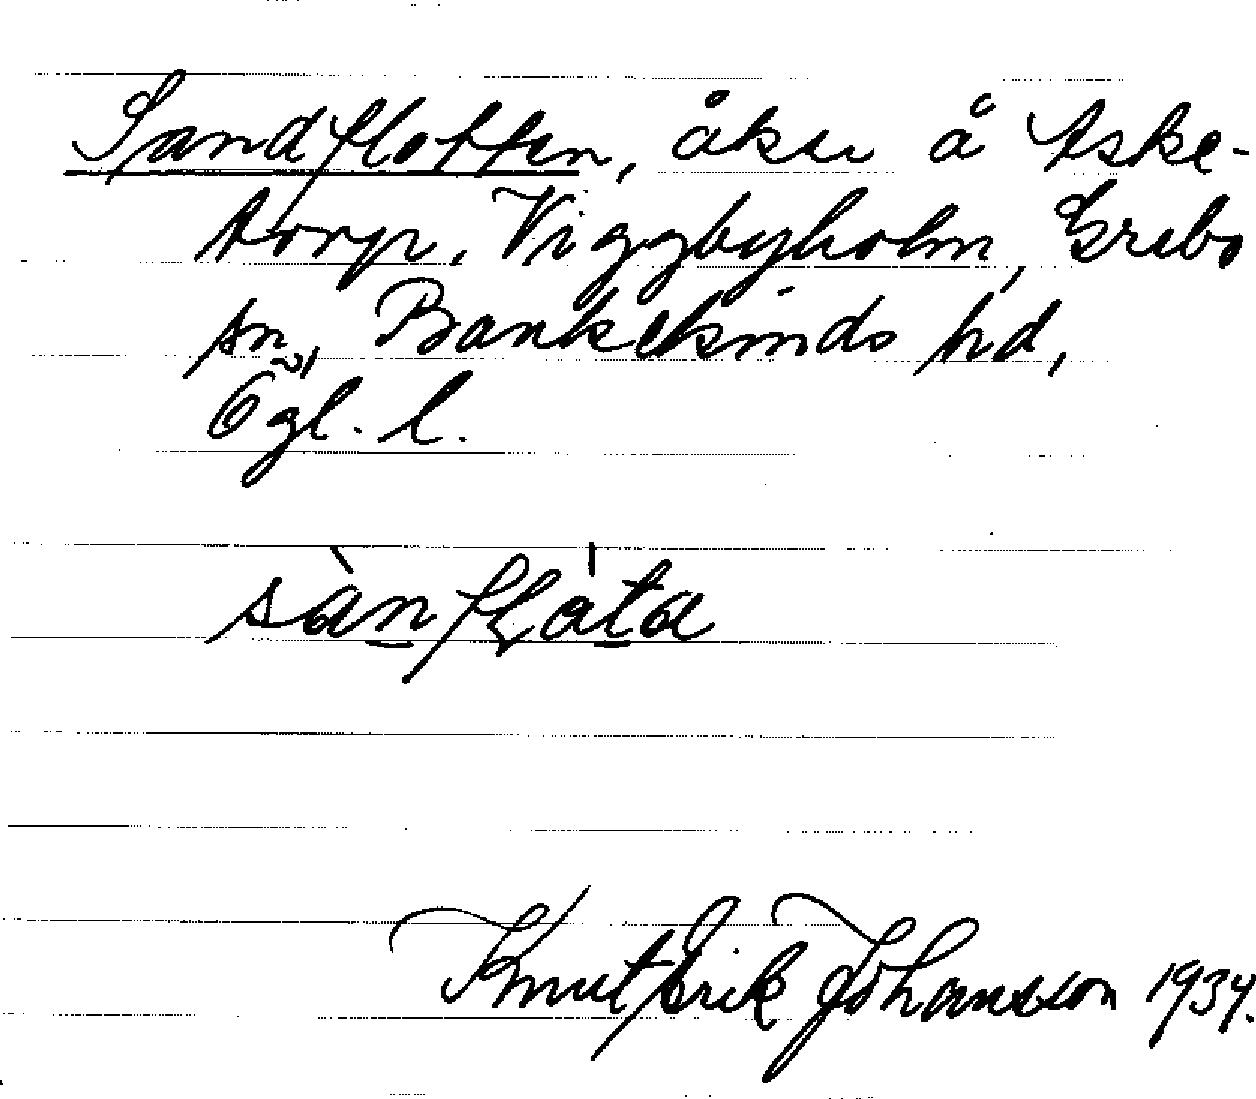 Sandflotten, åker å Aske-
torp, Viggbyholm, Grebo
sn, Bankekinds hd,
Ögl. l.
sànflåta
Knut Erik Johansson 1934.